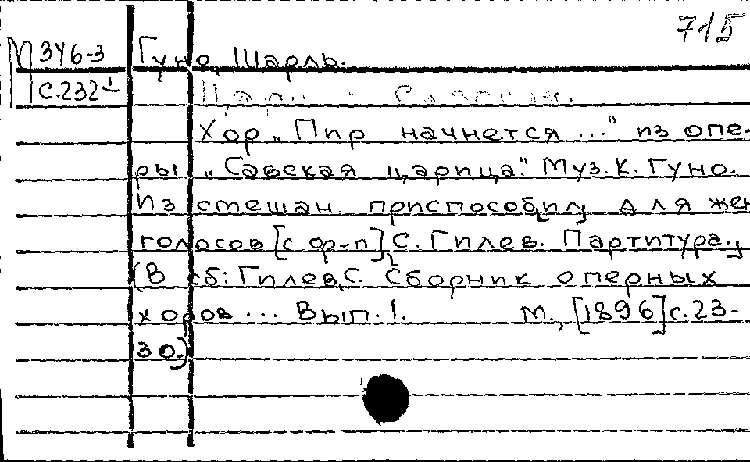 715
М 346-3 Гуно, Шарль.
С.232
Хор „Пир начнется ..." из опе-
ры „Савская царица". Муз. К. Гуно.
Из смешан. приспособил для жен
голосов [с ф-п] С. Гилев. Партитура.
(В сб: Гилев, С. Сборник оперных
хоров ... Вып. 1. М., [1896] с. 23-
30.)